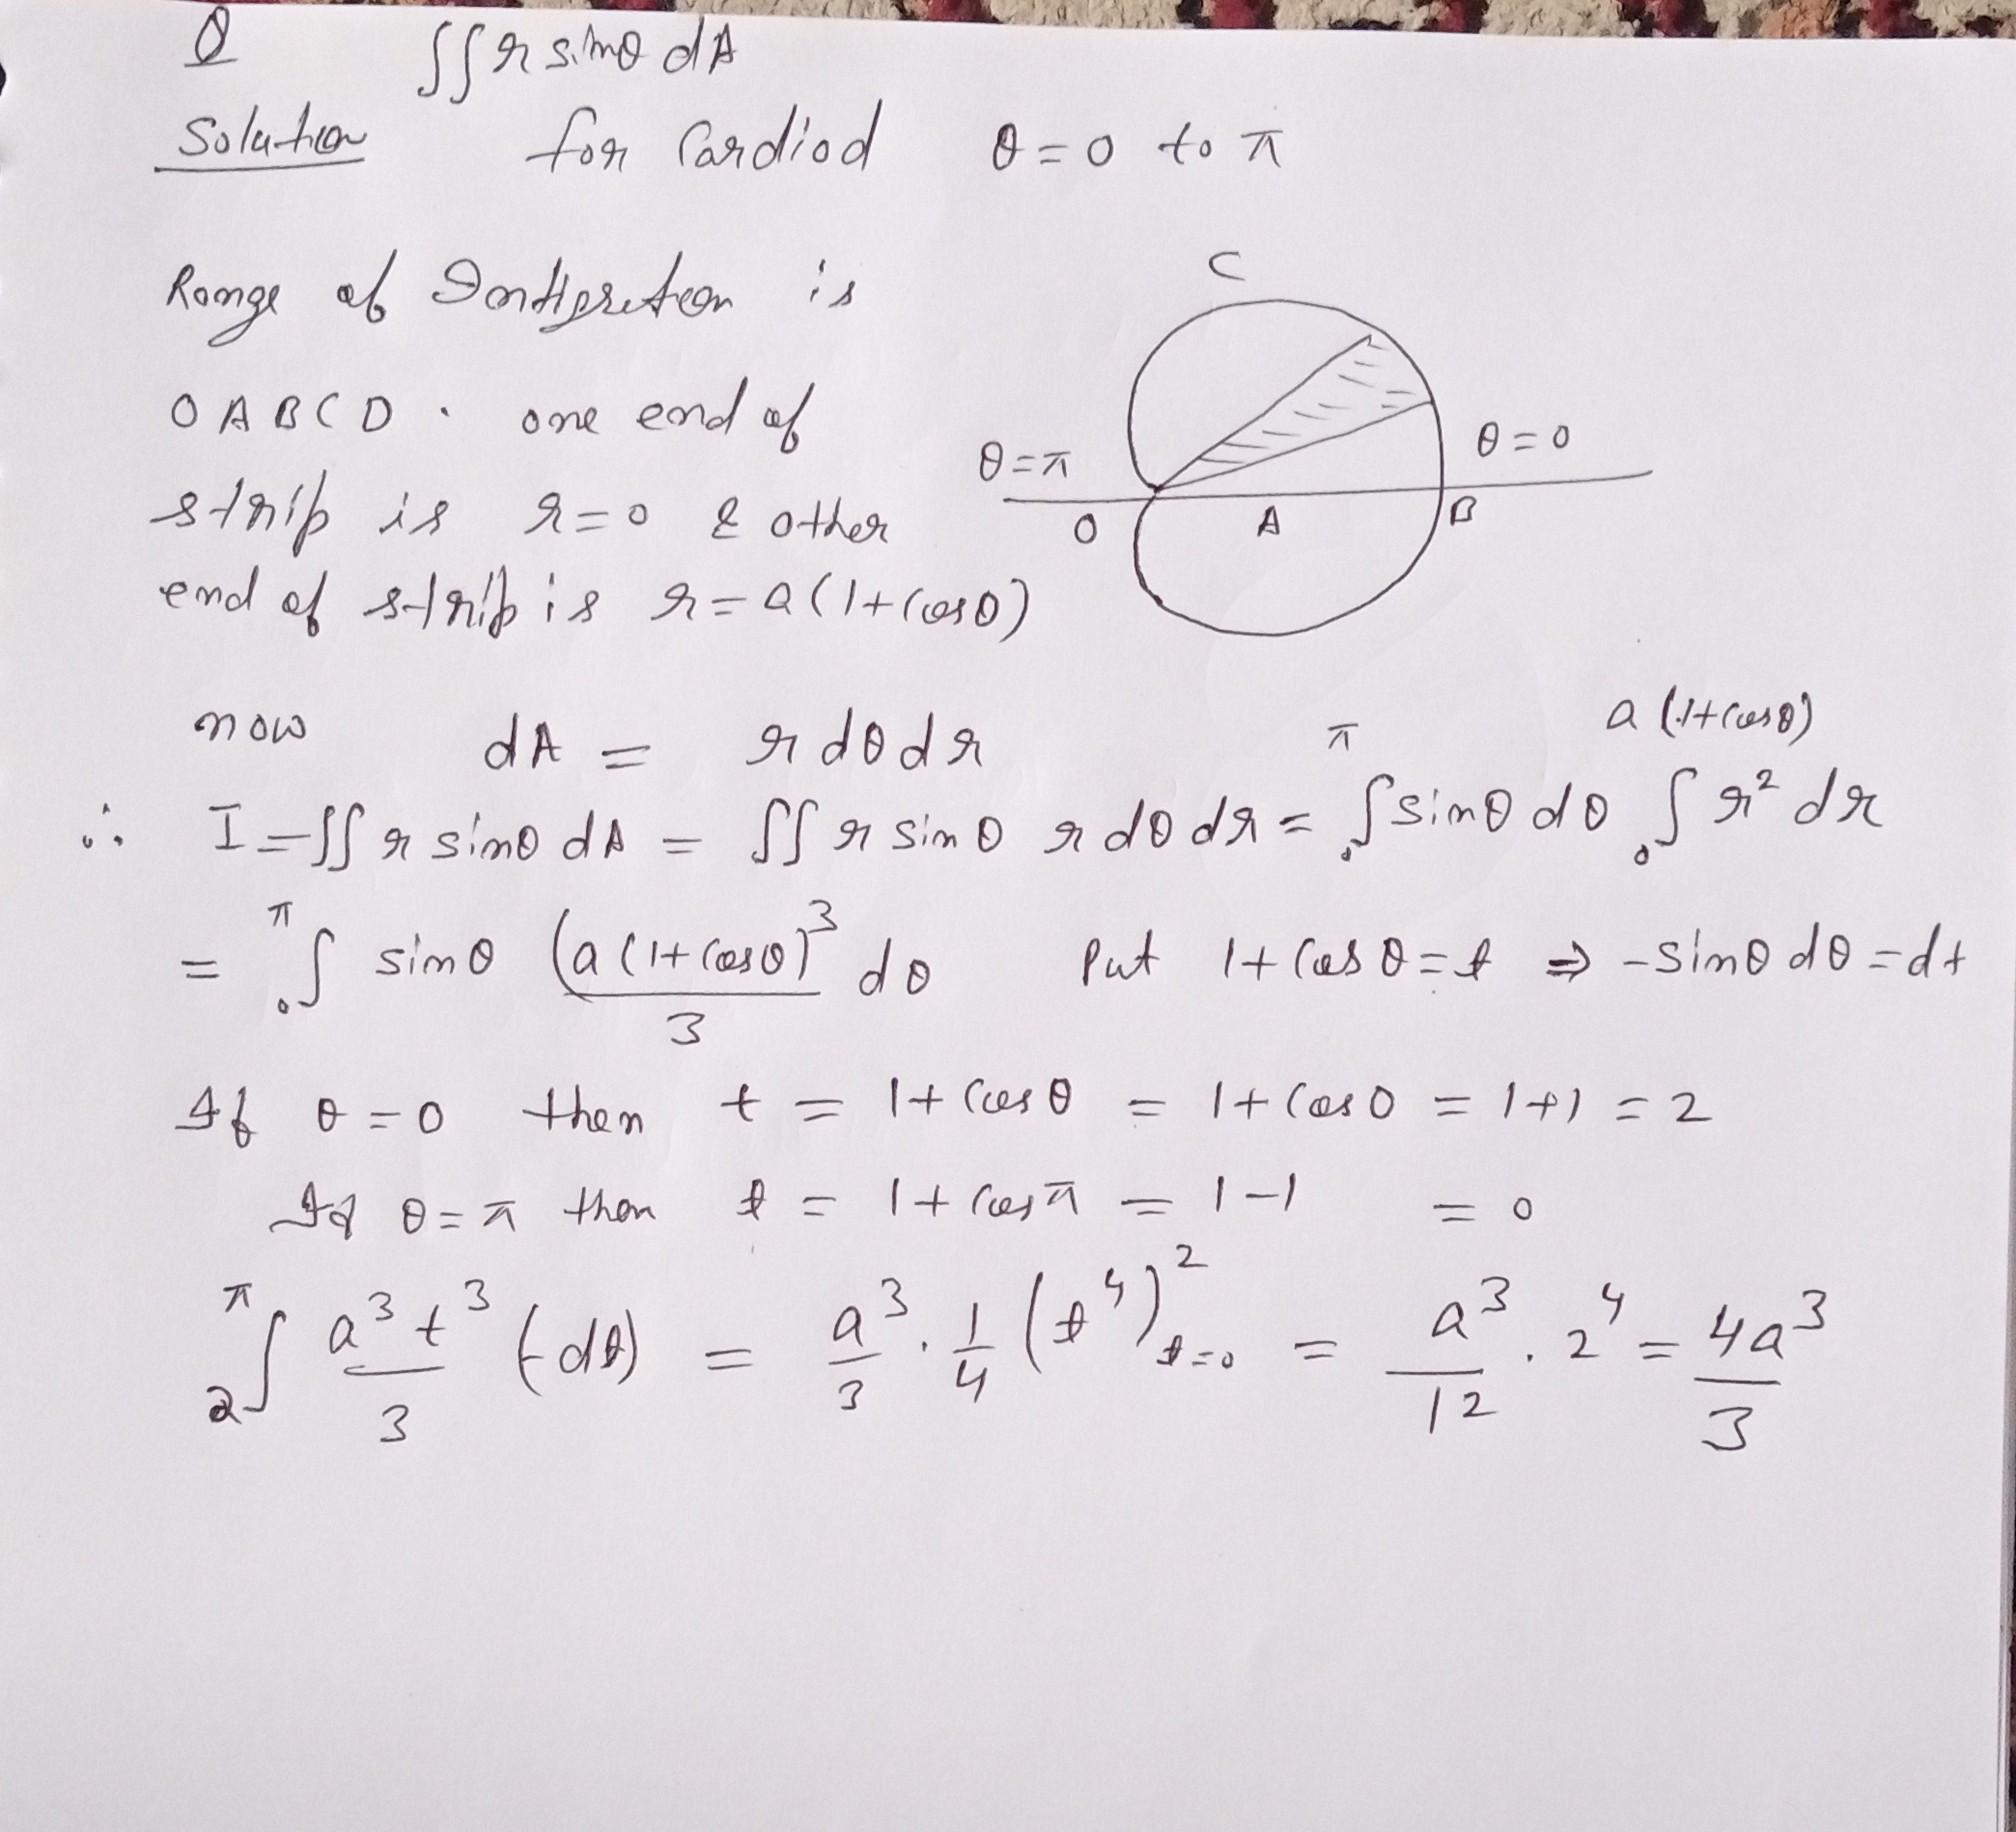 Q ∫∫ r sinθ dA
Solution for Cardiod θ = 0 to π
Range of is
O A B C D . one end of
strip is r = 0 & other
end of strip is r = a(1+cosθ)
C
θ = π
θ = 0
O A B
now dA = r dθ dr
∴ I = ∫∫ r sinθ dA = ∫∫ r sinθ r dθ dr = ₀∫^π sinθ dθ ₀∫^a(1+cosθ) r² dr
= ₀∫^π sinθ (a(1+cosθ)³/3 dθ Put 1+cosθ = t ⇒ -sinθ dθ = dt
If θ = 0 then t = 1+cosθ = 1+cos0 = 1+1 = 2
If θ = π then t = 1+cosπ = 1-1 = 0
₂∫^π a³t³/3 (-dt) = a³/3 . 1/4 (t⁴)²ₜ₌₀ = a³/12 . 2⁴ = 4a³/3